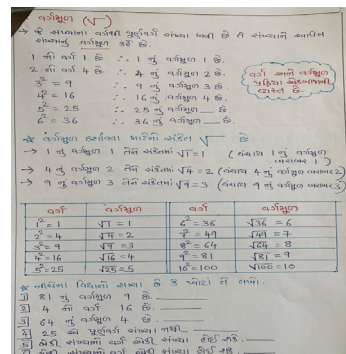 વર્ગમૂળ (√ )
→ જે સંખ્યાના વર્ગથી પૂર્ણવર્ગ સંખ્યા બની છે તે સંખ્યાને આપેલ
સંખ્યાનું વર્ગમૂળ કહે છે.
1 નો વર્ગ 1 છે ∴ 1 નું વર્ગમૂળ 1 છે.
2 નો વર્ગ 4 છે ∴ 4 નું વર્ગમૂળ 2 છે.
3² = 9 ∴ 9 નું વર્ગમૂળ 3 છે
4² = 16 ∴ 16 નું વર્ગમૂળ 4 છે.
5² = 25 ∴ 25 નું વર્ગમૂળ __ છે.
6² = 36 ∴ 36 નું વર્ગમૂળ __ છે.
વર્ગ અને વર્ગમૂળ
પ્રક્રિયા એકબીજાની
વ્યસ્ત છે.
☆ વર્ગમૂળ દર્શાવવા માટેનો સંકેત √ છે
→ 1 નું વર્ગમૂળ 1 તેને સંકેતમાં √1 = 1 (વંચાય 1 નું વર્ગમૂળ
બરાબર 1)
→ 4 નું વર્ગમૂળ 2 તેને સંકેતમાં √4 = 2 (વંચાય 4 નું વર્ગમૂળ બરાબર 2)
→ 9 નું વર્ગમૂળ 3 તેને સંકેતમાં √9 = 3 (વંચાય 9 નું વર્ગમૂળ બરાબર 3)
વર્ગ વર્ગમૂળ વર્ગ વર્ગમૂળ
1² = 1 √1 = 1 6² = 36 √36 = 6
2² = 4 √4 = 2 7² = 49 √49 = 7
3² = 9 √9 = 3 8² = 64 √64 = 8
4² = 16 √16 = 4 9² = 81 √81 = 9
5² = 25 √25 = 5 10² = 100 √100 = 10
☆ નીચેના વિધાનો સાચા છે કે ખોટા તે લખો.
1) 81 નું વર્ગમૂળ 9 છે.
2) 4 નો વર્ગ 16 છે.
3) 64 નું વર્ગમૂળ 4 છે.
4) 25 એ પૂર્ણવર્ગ સંખ્યા નથી
5) સંખ્યાનો વર્ગ સંખ્યા હોઈ શકે.
6) સંખ્યાનો વર્ગ સંખ્યા હોઈ શકે.